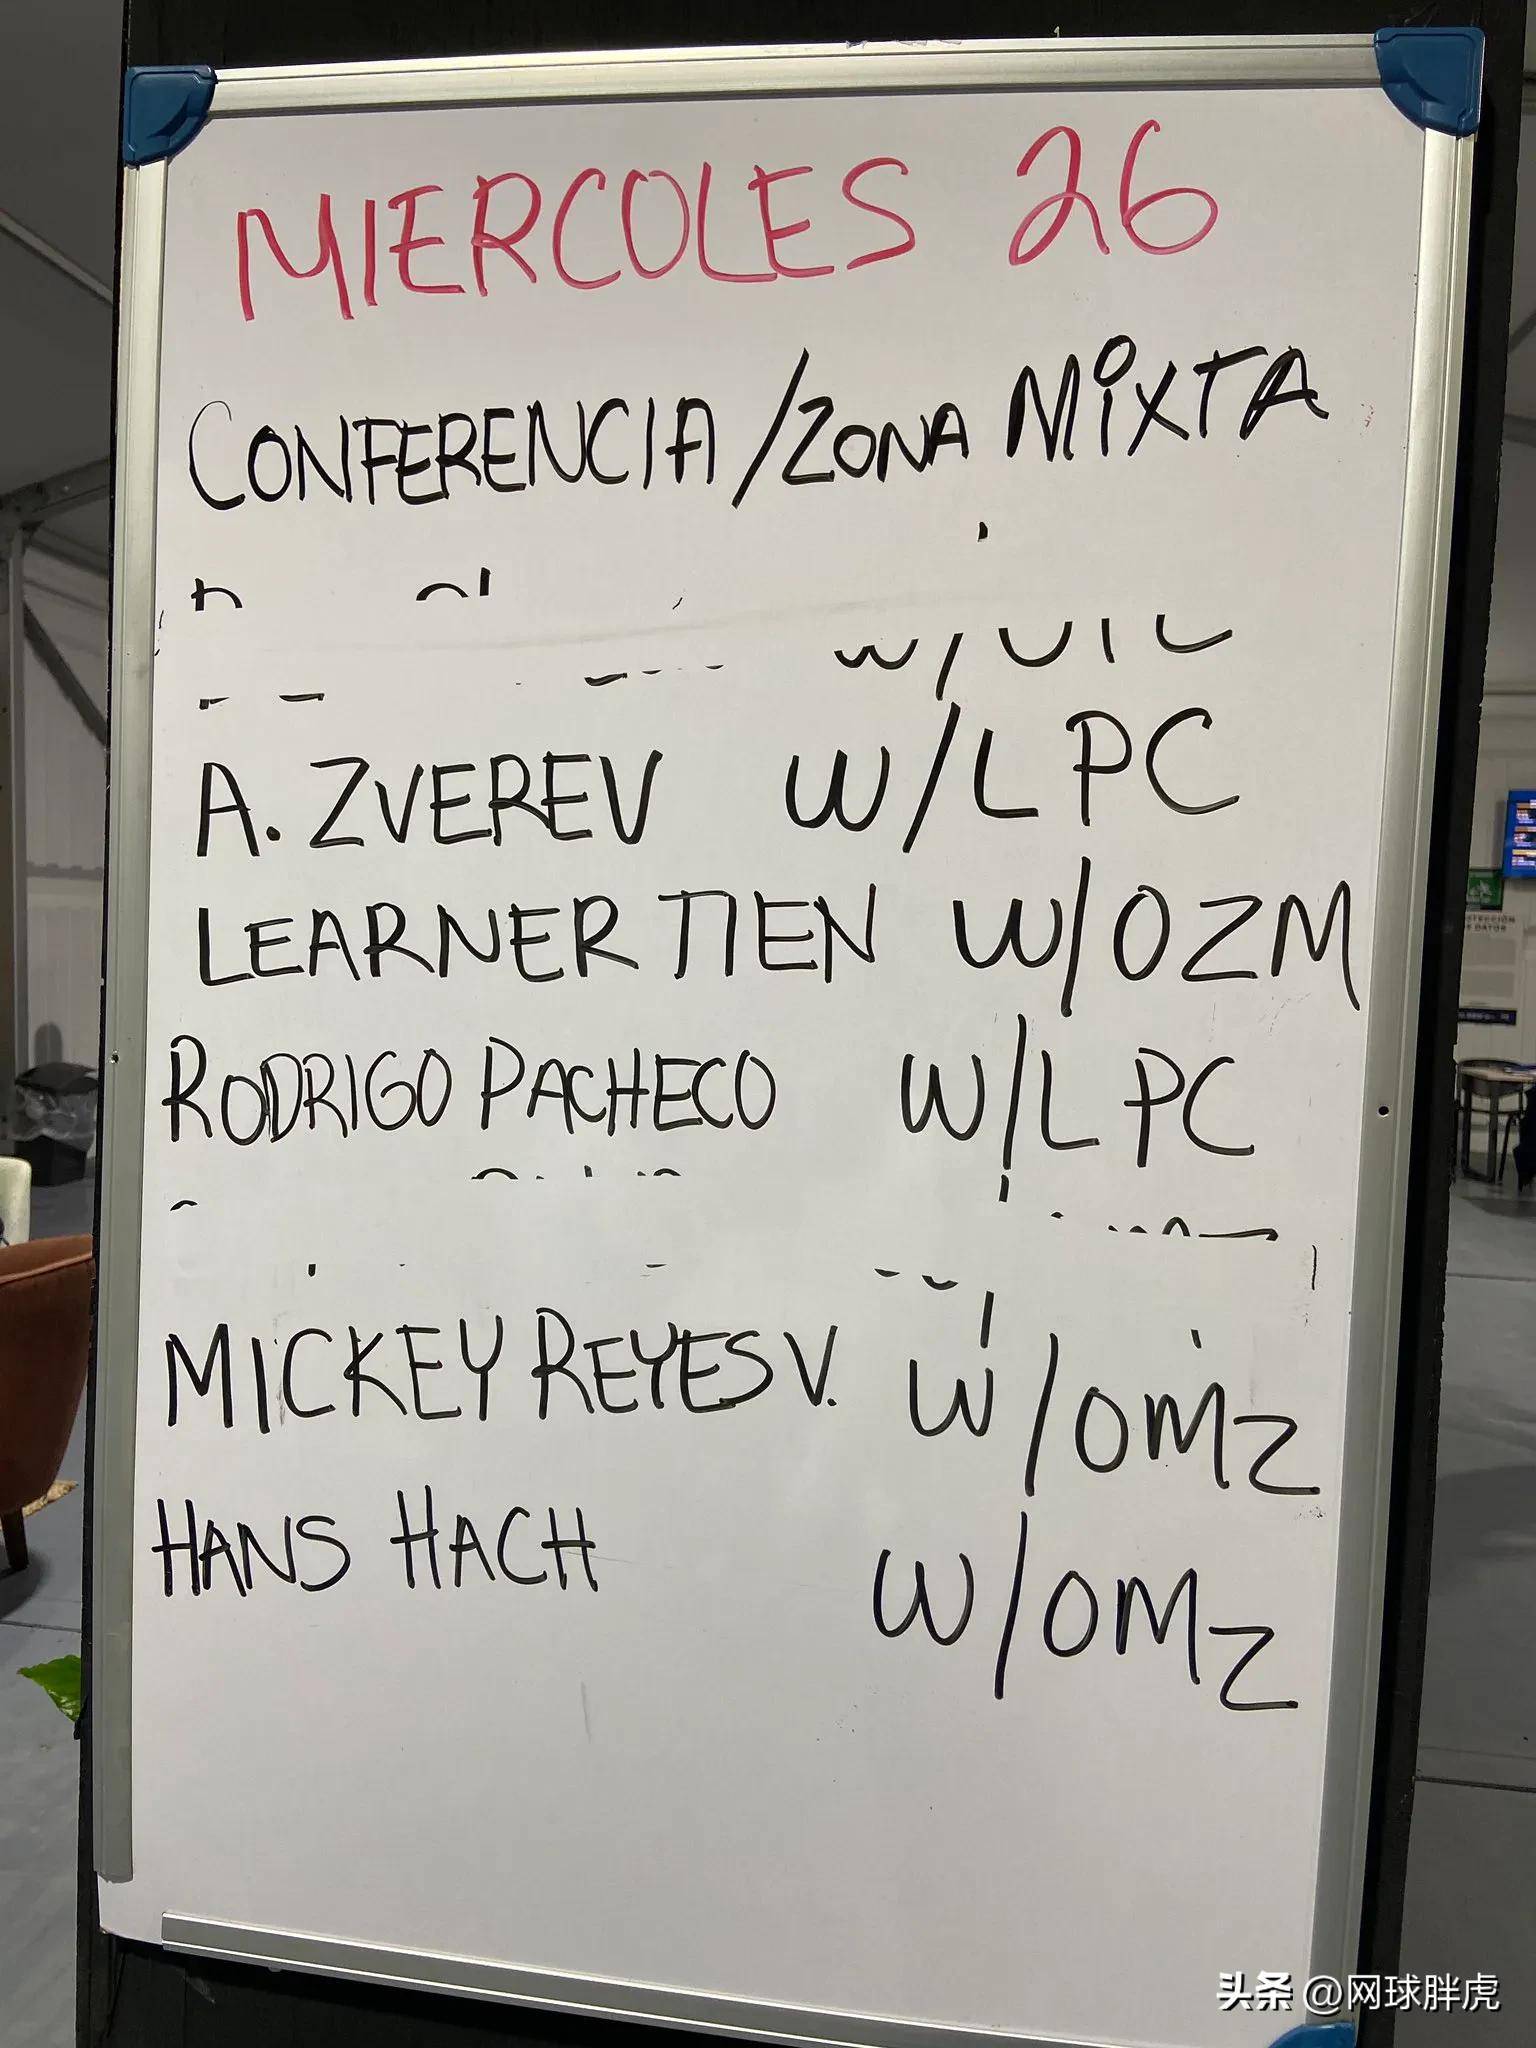 MIERCOLES 26
CONFERENCIA / ZONA MIXTA
A. ZVEREV W/LPC
LEARNER TIEN W/OZM
RODRIGO PACHECO W/LPC
MICKEY REYES V. W/OMZ
HANS HACH W/OMZ
头条 @网球胖虎